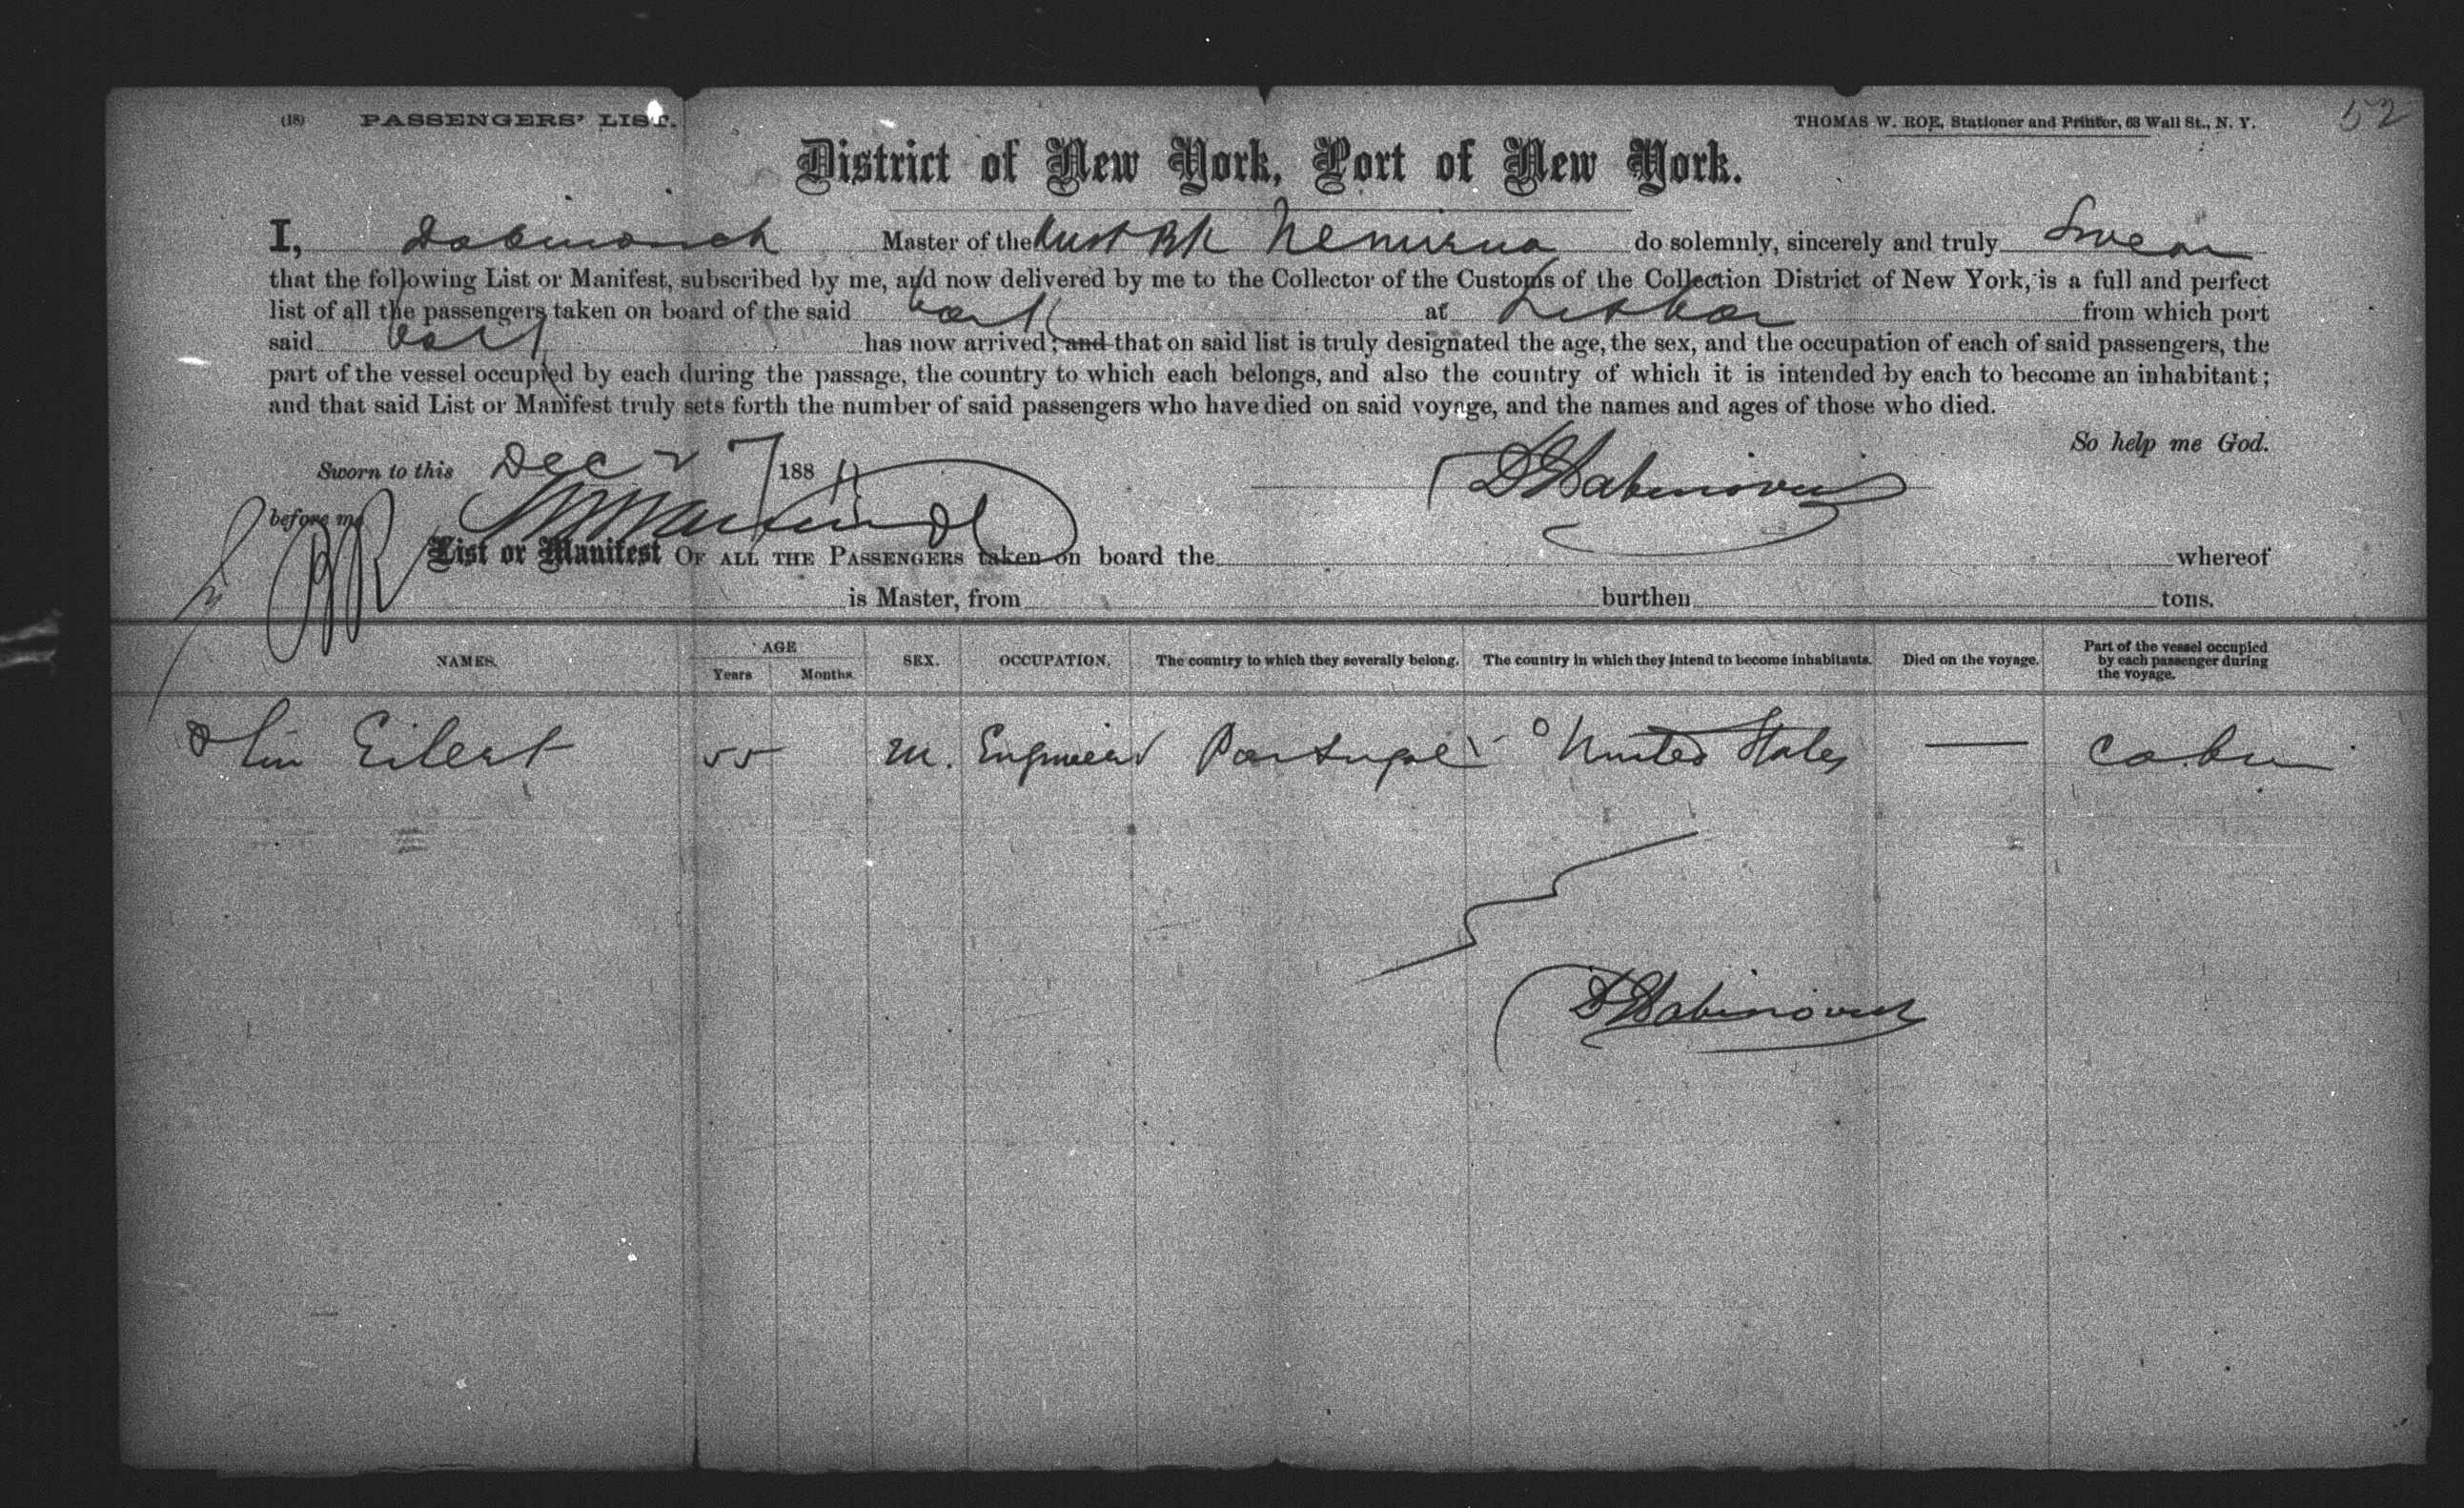 (18) PASSENGERS' LIST. THOMAS W. ROE, Stationer and Printer, 63 Wall St., N. Y. 52
District of New York, Port of New York.
I, Dabinovich Master of the Aust Bk Nemirna do solemnly, sincerely and truly Swear
that the following List or Manifest, subscribed by me, and now delivered by me to the Collector of the Customs of the Collection District of New York, is a full and perfect
list of all the passengers taken on board of the said bark at Lisbon from which port
said bark has now arrived; and that on said list is truly designated the age, the sex, and the occupation of each of said passengers, the
part of the vessel occupied by each during the passage, the country to which each belongs, and also the country of which it is intended by each to become an inhabitant;
and that said List or Manifest truly sets forth the number of said passengers who have died on said voyage, and the names and ages of those who died.
So help me God.
Sworn to this Dec 27 188 D Dabinovich
before me
List or Manifest OF ALL THE PASSENGERS taken on board the whereof
is Master, from burthen tons.
NAMES. AGE Years Months SEX. OCCUPATION. The country to which they severally belong. The country in which they intend to become inhabitants. Died on the voyage. Part of the vessel occupied by each passenger during the voyage.
Eilert 55 M. Engineer Portugal United States — Cabin
D Dabinovich